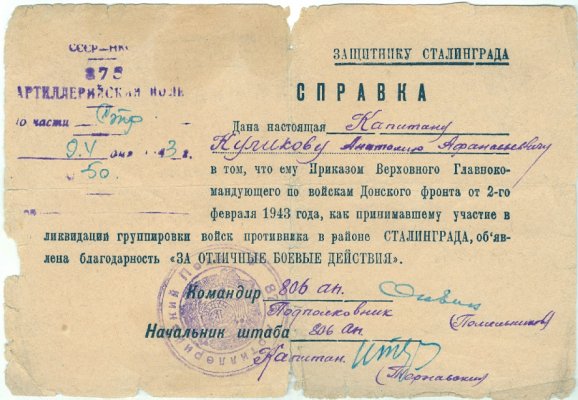 СССР—НК
875
АРТИЛЛЕРИЙСКИЙ ПОЛК
по части
9.V 3 г.
50.
ЗАЩИТНИКУ СТАЛИНГРАДА
СПРАВКА
Дана настоящая Капитану
Куликову Анатолию Афанасьевичу
в том, что ему Приказом Верховного Главноко-
мандующего по войскам Донского фронта от 2-го
февраля 1943 года, как принимавшему участие в
ликвидации группировки войск противника в районе СТАЛИНГРАДА, об'яв-
лена благодарность «ЗА ОТЛИЧНЫЕ БОЕВЫЕ ДЕЙСТВИЯ».
Командир 806 ап.
Подполковник
Начальник штаба 806 ап
Капитан.